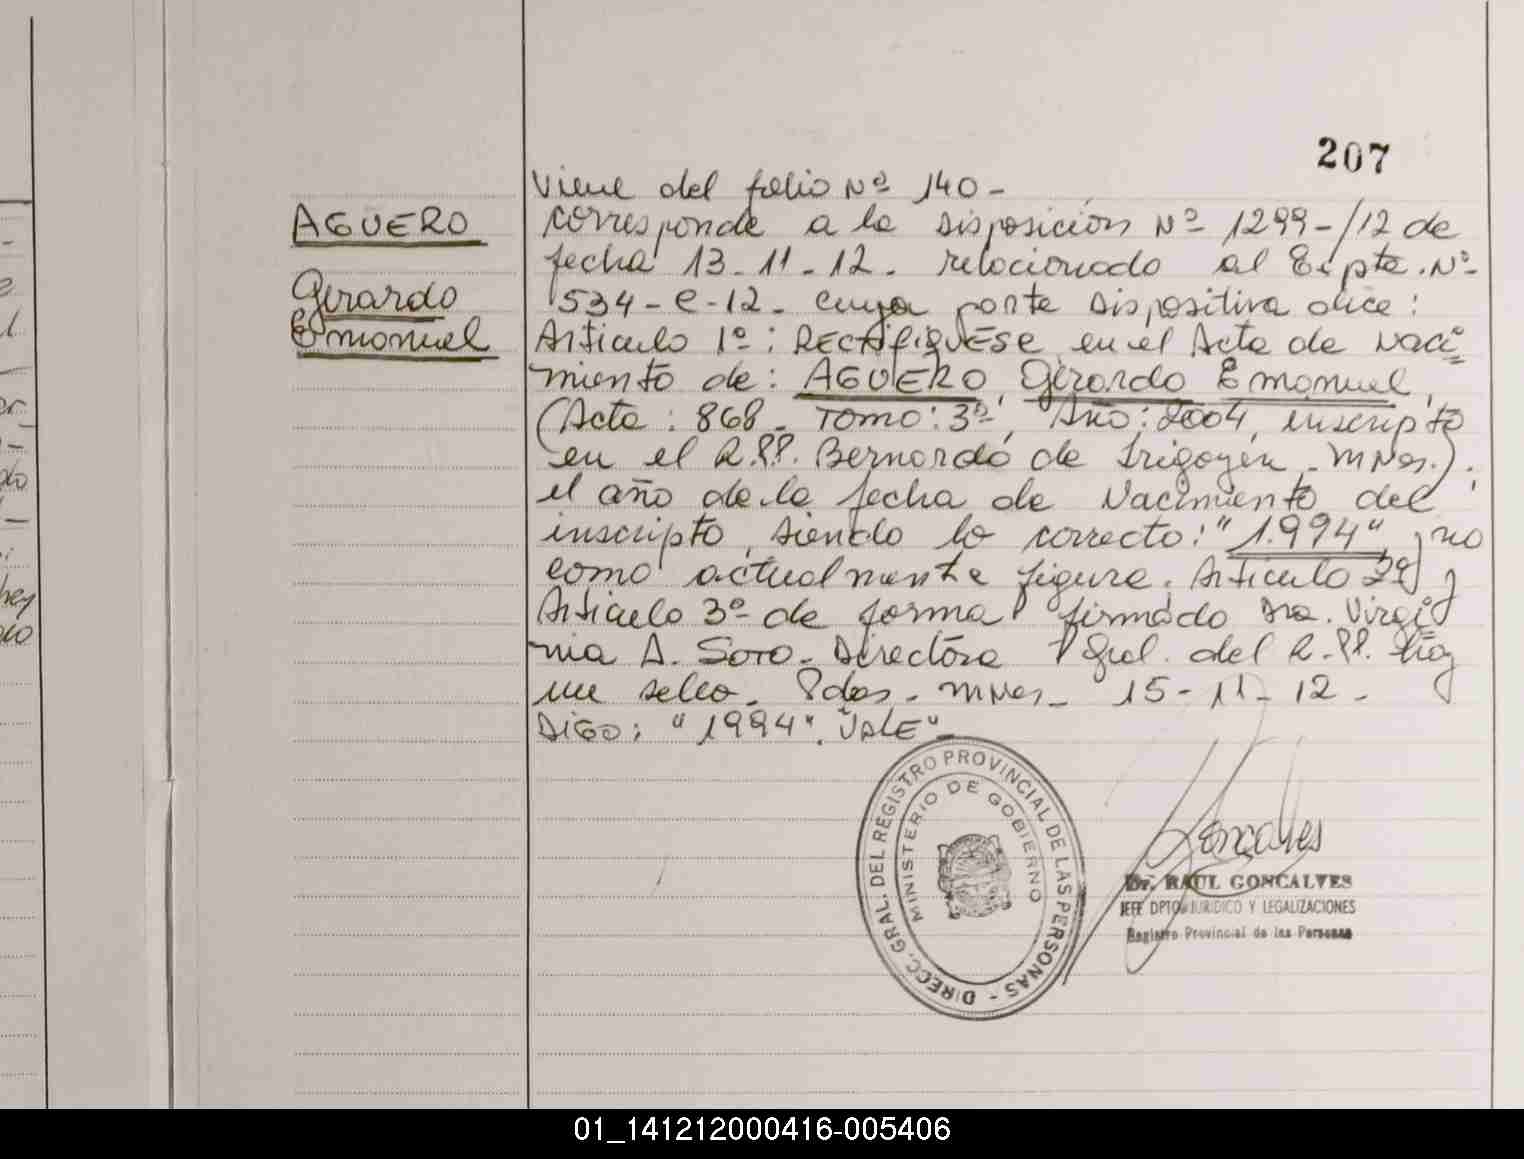 207
Viene del folio Nº 140-
AGUERO
Gerardo
Emanuel
corresponde a la Disposición Nº 1299-/12 de
fecha 13-11-12- relacionado al Expte. Nº
534-e-12- cuya parte Dispositiva dice:
Artículo 1º: RECTIFIQUESE en el Acta de Naci
miento de: AGUERO, Gerardo Emanuel,
(Acta: 868- Tomo: 3º-, Año: 2004, inscripto
en el R.PP. Bernardo de Irigoyen - Mnes.).
el año de la fecha de Nacimiento del
inscripto, siendo lo correcto: "1.994" y no
como actualmente figura. Artículo 2º y
Artículo 3º de forma firmado Dra. Virgi
nia A. Soto- Directora Gral. del R.PP. Hay
un sello- Pdas- Mnes- 15-11-12-
DIGO: "1994". VALE"-
DIRECC. GRAL. DEL REGISTRO PROVINCIAL DE LAS PERSONAS -
MINISTERIO DE GOBIERNO
Goncalves
Dr. RAUL GONCALVES
JEFE DPTO. JURIDICO Y LEGALIZACIONES
Registro Provincial de las Personas
01_141212000416-005406